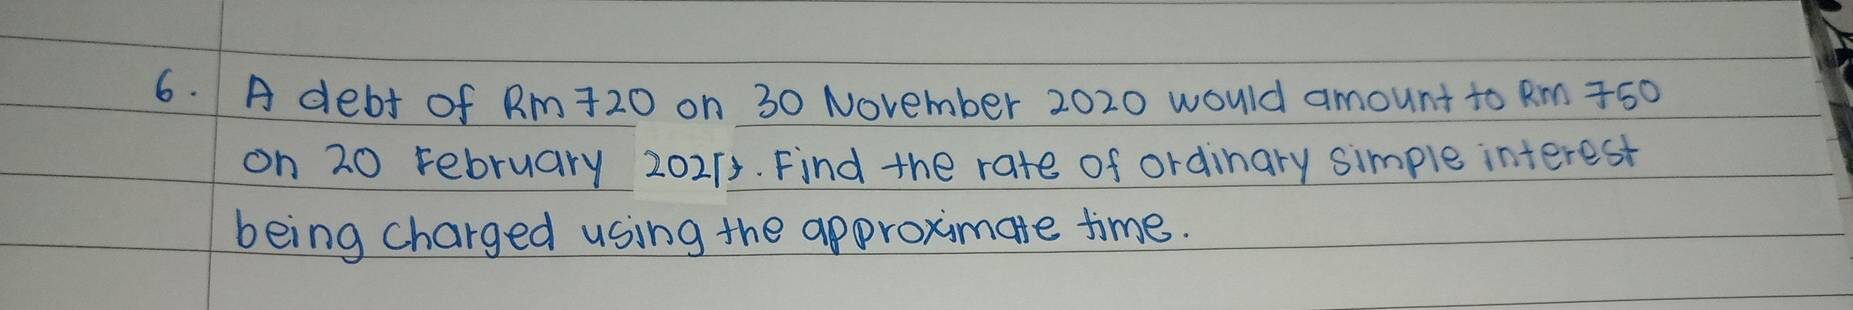 6. A debt of Rm 720 on 30 November 2020 would amount to Rm 750
on 20 February 2021. Find the rate of ordinary simple interest
being charged using the approximate time.